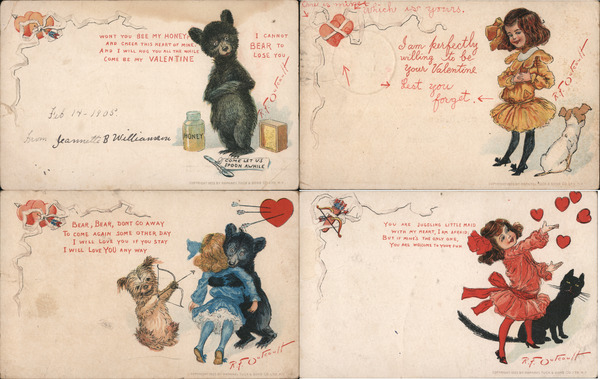 WON'T YOU BEE MY HONEY
AND CHEER THIS HEART OF MINE,
AND I WILL HUG YOU ALL THE WHILE
COME BE MY VALENTINE
I CANNOT
BEAR TO
LOSE YOU
Feb 14 - 1905
From Jeannette B Williamson
HONEY
COME LET US
SPOON AWHILE
R.F. Outcault
which is yours.
I am perfectly
willing to be
Your Valentine
Lest you
forget.
R.F. Outcault
BEAR, BEAR, DONT GO AWAY
TO COME AGAIN SOME OTHER DAY
I WILL LOVE YOU IF YOU STAY
I WILL LOVE YOU ANY WAY
R.F. Outcault
YOU ARE JUGGLING LITTLE MAID
WITH MY HEART, I AM AFRAID,
BUT IF MINE'S THE ONLY ONE,
YOU ARE WELCOME TO YOUR FUN
R.F. Outcault